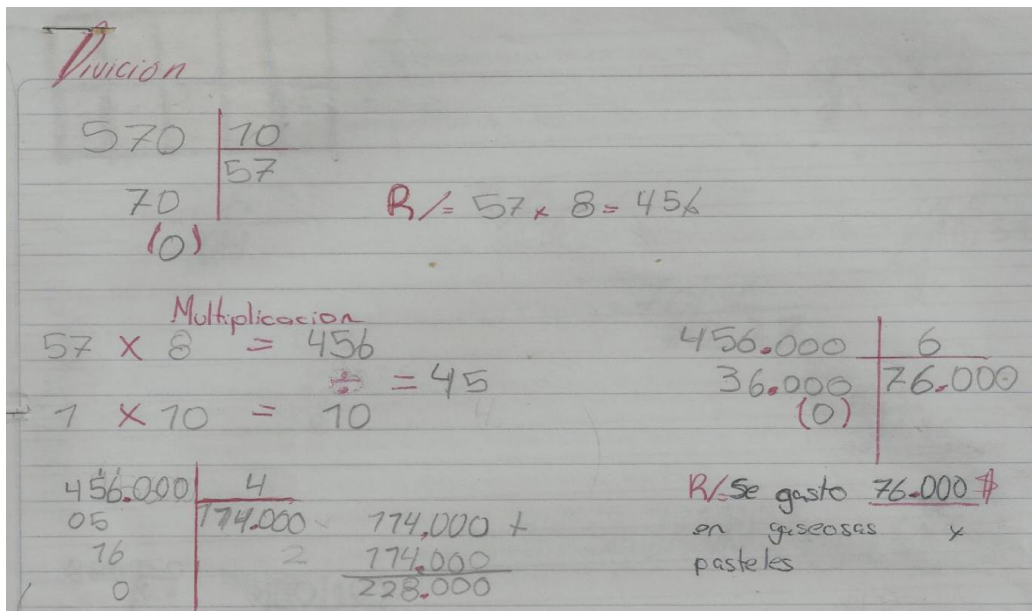 Divicion
570 10
57
70
(0)
R/= 57 x 8 = 456
Multiplicacion
57 x 8 = 456
÷ = 45
1 x 10 = 10
456.000 6
36.000 76.000
(0)
456.000 4
05 114.000
16 2
0
114,000 +
114.000
228.000
R/ Se gasto 76.000 $
en gaseosas y
pasteles